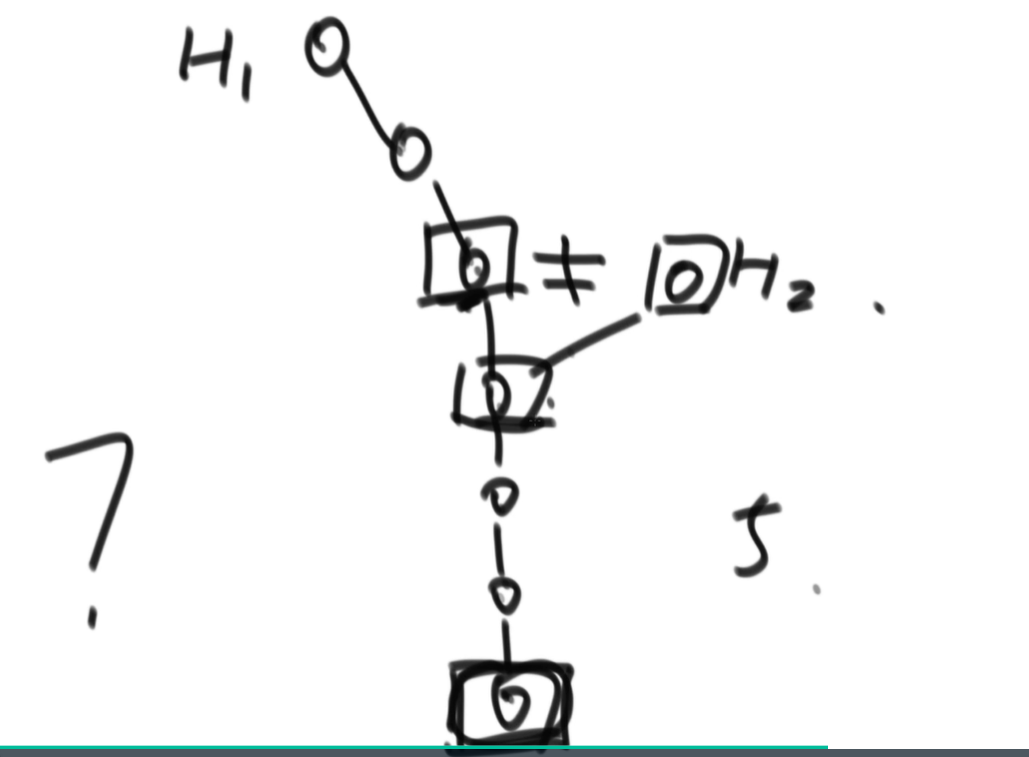 H₁
≠ H₂
?
5